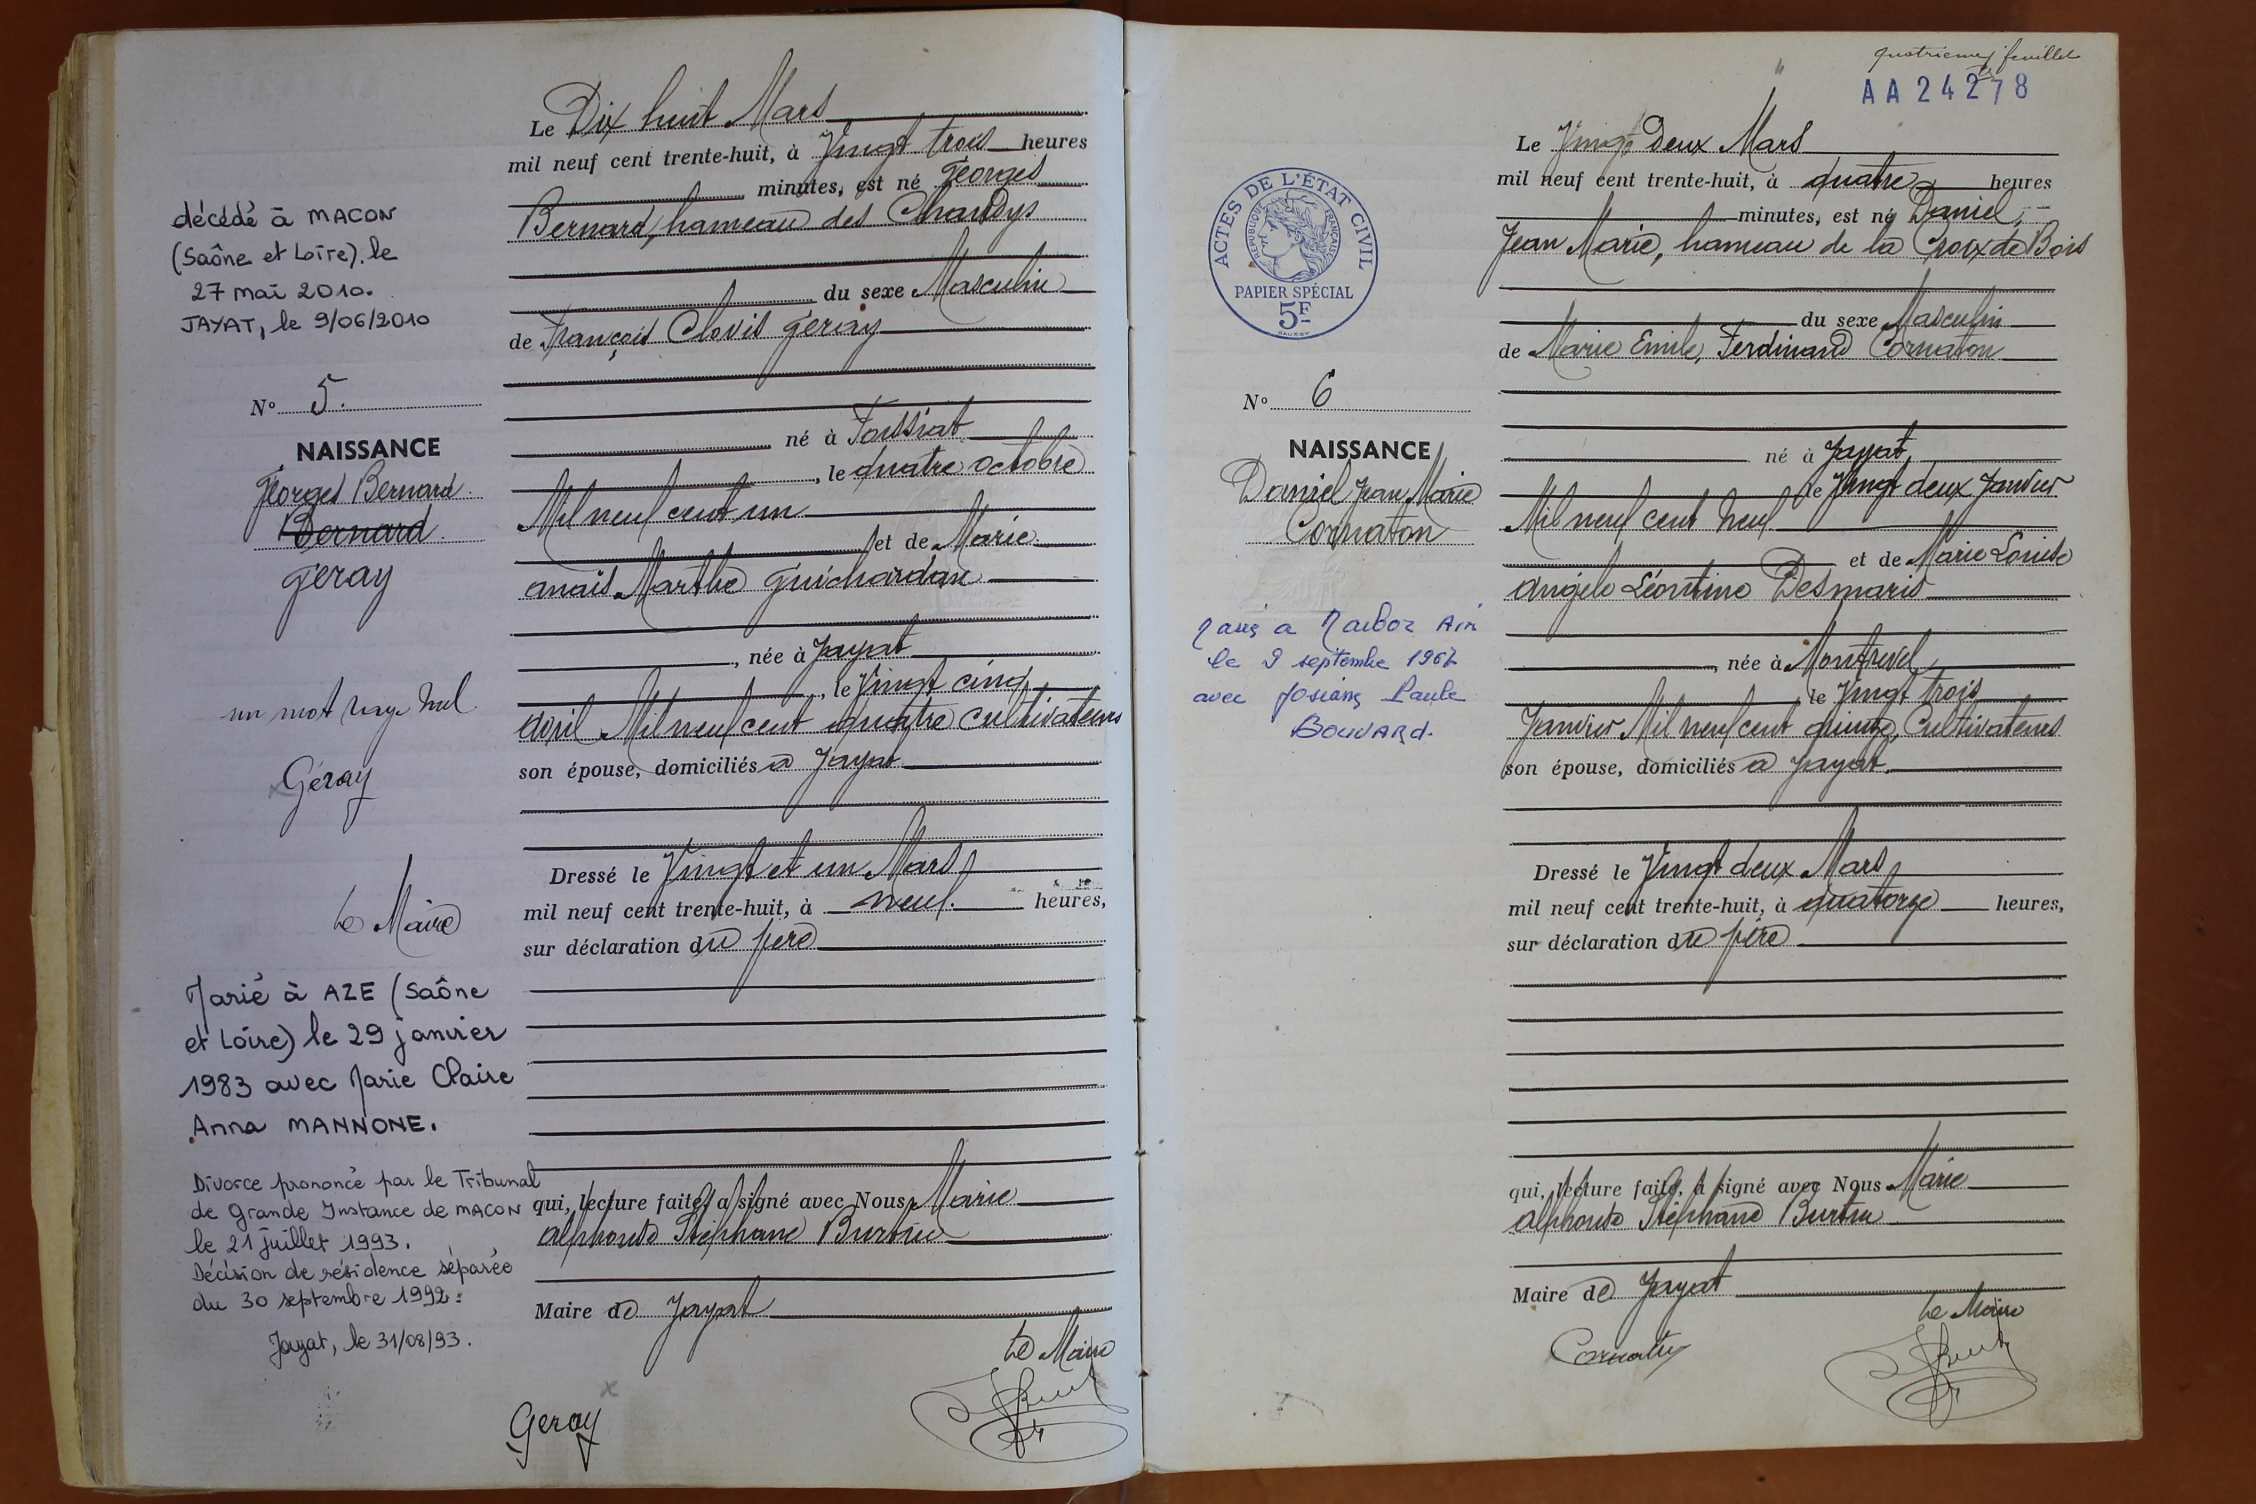 décédé à MACON
(Saône et Loire). le
27 mai 2010.
JAYAT, le 9/06/2010
No 5.
NAISSANCE
Georges Bernard
Bernard
Geray
un mot rayé nul
Géray
Le Maire
Marié à AZE (Saône
et Loire) le 29 janvier
1983 avec Marie Claire
Anna MANNONE.
Divorce prononcé par le Tribunal
de Grande Instance de MACON
le 21 juillet 1993.
Décision de résidence séparée
du 30 septembre 1992.
Jayat, le 31/08/93.
Le Dix huit Mars
mil neuf cent trente-huit, à Vingt trois heures
minutes, est né Georges
Bernard, hameau des Chardys
du sexe Masculin
de François Clovis Geray
né à Foissiat
, le quatre octobre
Mil neuf cent un
et de Marie
anaïs Marthe Guichardan
, née à Jayat
, le Vingt cinq
avril Mil neuf cent quatre cultivateurs
son épouse, domiciliés à Jayat
Dressé le Vingt et un Mars
mil neuf cent trente-huit, à neuf. heures,
sur déclaration du père
qui, lecture faite, a signé avec Nous Marie
alphonse Stéphane Burtin
Maire de Jayat
Le Maire
Geray
quatrieme feuillet
AA 24278
ACTES DE L'ÉTAT CIVIL
RÉPUBLIQUE FRANÇAISE
PAPIER SPÉCIAL
5F
No 6
NAISSANCE
Daniel Jean Marie
Cornaton
Marié a Marboz Ain
le 9 septembre 1967
avec Josiane Paule
BOUVARd.
Le Vingt Deux Mars
mil neuf cent trente-huit, à quatre heures
minutes, est né Daniel,
Jean Marie, hameau de la Croix de Bois
du sexe Masculin
de Marie Emile, Ferdinand Cornaton
né à Jayat,
le Vingt deux Janvier
Mil neuf cent neuf
et de Marie Louise
angèle Léontine Desmaris
, née à Montrevel,
le Vingt trois
Janvier Mil neuf cent quinze, Cultivateurs
son épouse, domiciliés à Jayat.
Dressé le Vingt deux Mars
mil neuf cent trente-huit, à quatorze heures,
sur déclaration du père
qui, lecture faite, a signé avec Nous Marie
alphonse Stéphane Burtin
Maire de Jayat
Le Maire
Cornaton